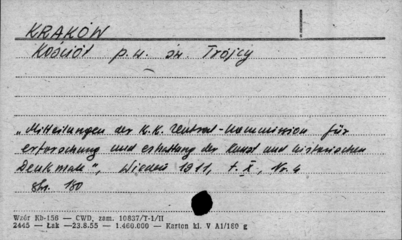 KRAKÓW
Kościół p.w. św. Trójcy
„Mitteilungen der K.K. Zentral-Kommission für
erforschung und erhaltung der Kunst und historischen
Denkmale", Wiedeń 1911, t. X, Nr. 4
Str. 180
Wzór Kb-156 — CWD, zam. 10837/T-1/II
2445 — Łak — 23.8.55 — 1.460.000 — Karton kl. V A1/160 g